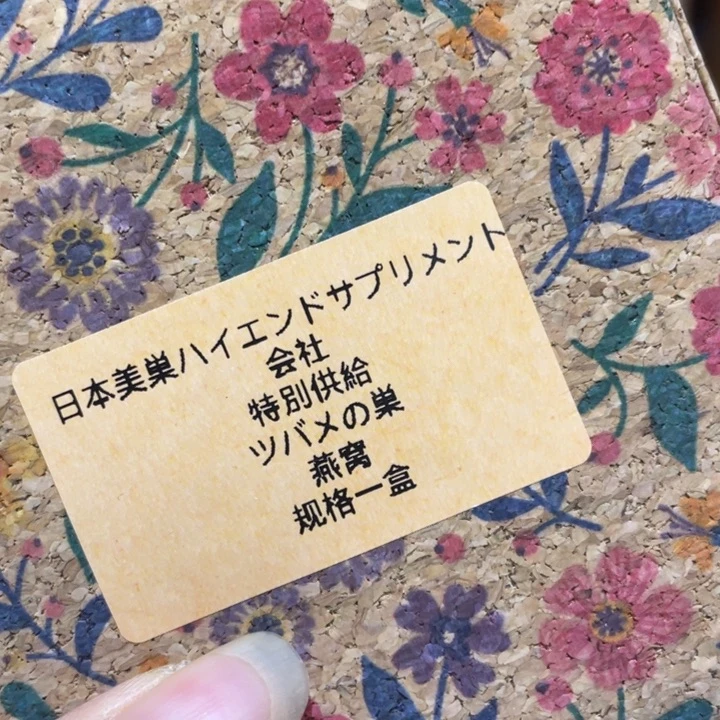 日本美巣ハイエンドサプリメント
会社
特別供給
ツバメの巣
燕窝
规格一盒